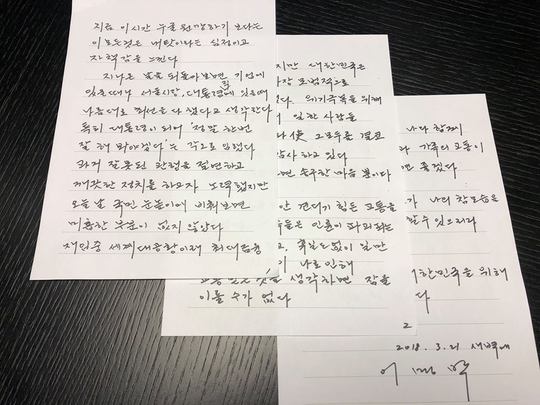 지금 이시간 누굴 원망하기 보다는
이 모든것은 내탓이라는 심정이고
자책감을 느낀다
지나온 날을 되돌아보면 기업에
있을때나 서울시장, 대통령직에 있을때나
나름대로 최선을 다했다고 생각한다
특히 대통령이 되어 "정말 한번
잘 해 봐야겠다"는 각오로 임했다
과거 잘못된 관행을 절연하고
깨끗한 정치를 하고자 노력했지만
오늘날 국민 눈높이에 비춰보면
미흡한 부분이 없지 않았다
재임중 세계대공황이래 최대 금융
지만 대한민국은
장 모범적으로
다. 위기극복을 위해
이 일한 사람들
결코
감사하고 있다
면 송구한 마음 뿐이다
안 견디기 힘든 고통을
들은 인륜이 파괴되는
고, 휴일도 없이 일만
나로 인해
생각하면 잠을
이룰 수가 없다
2
나와 함께
가족의 고통이
면 좋겠다
가 나의 참모습을
말할 수 있으리라
대한민국을 위해
다
2018. 3. 21 새벽에
이명박